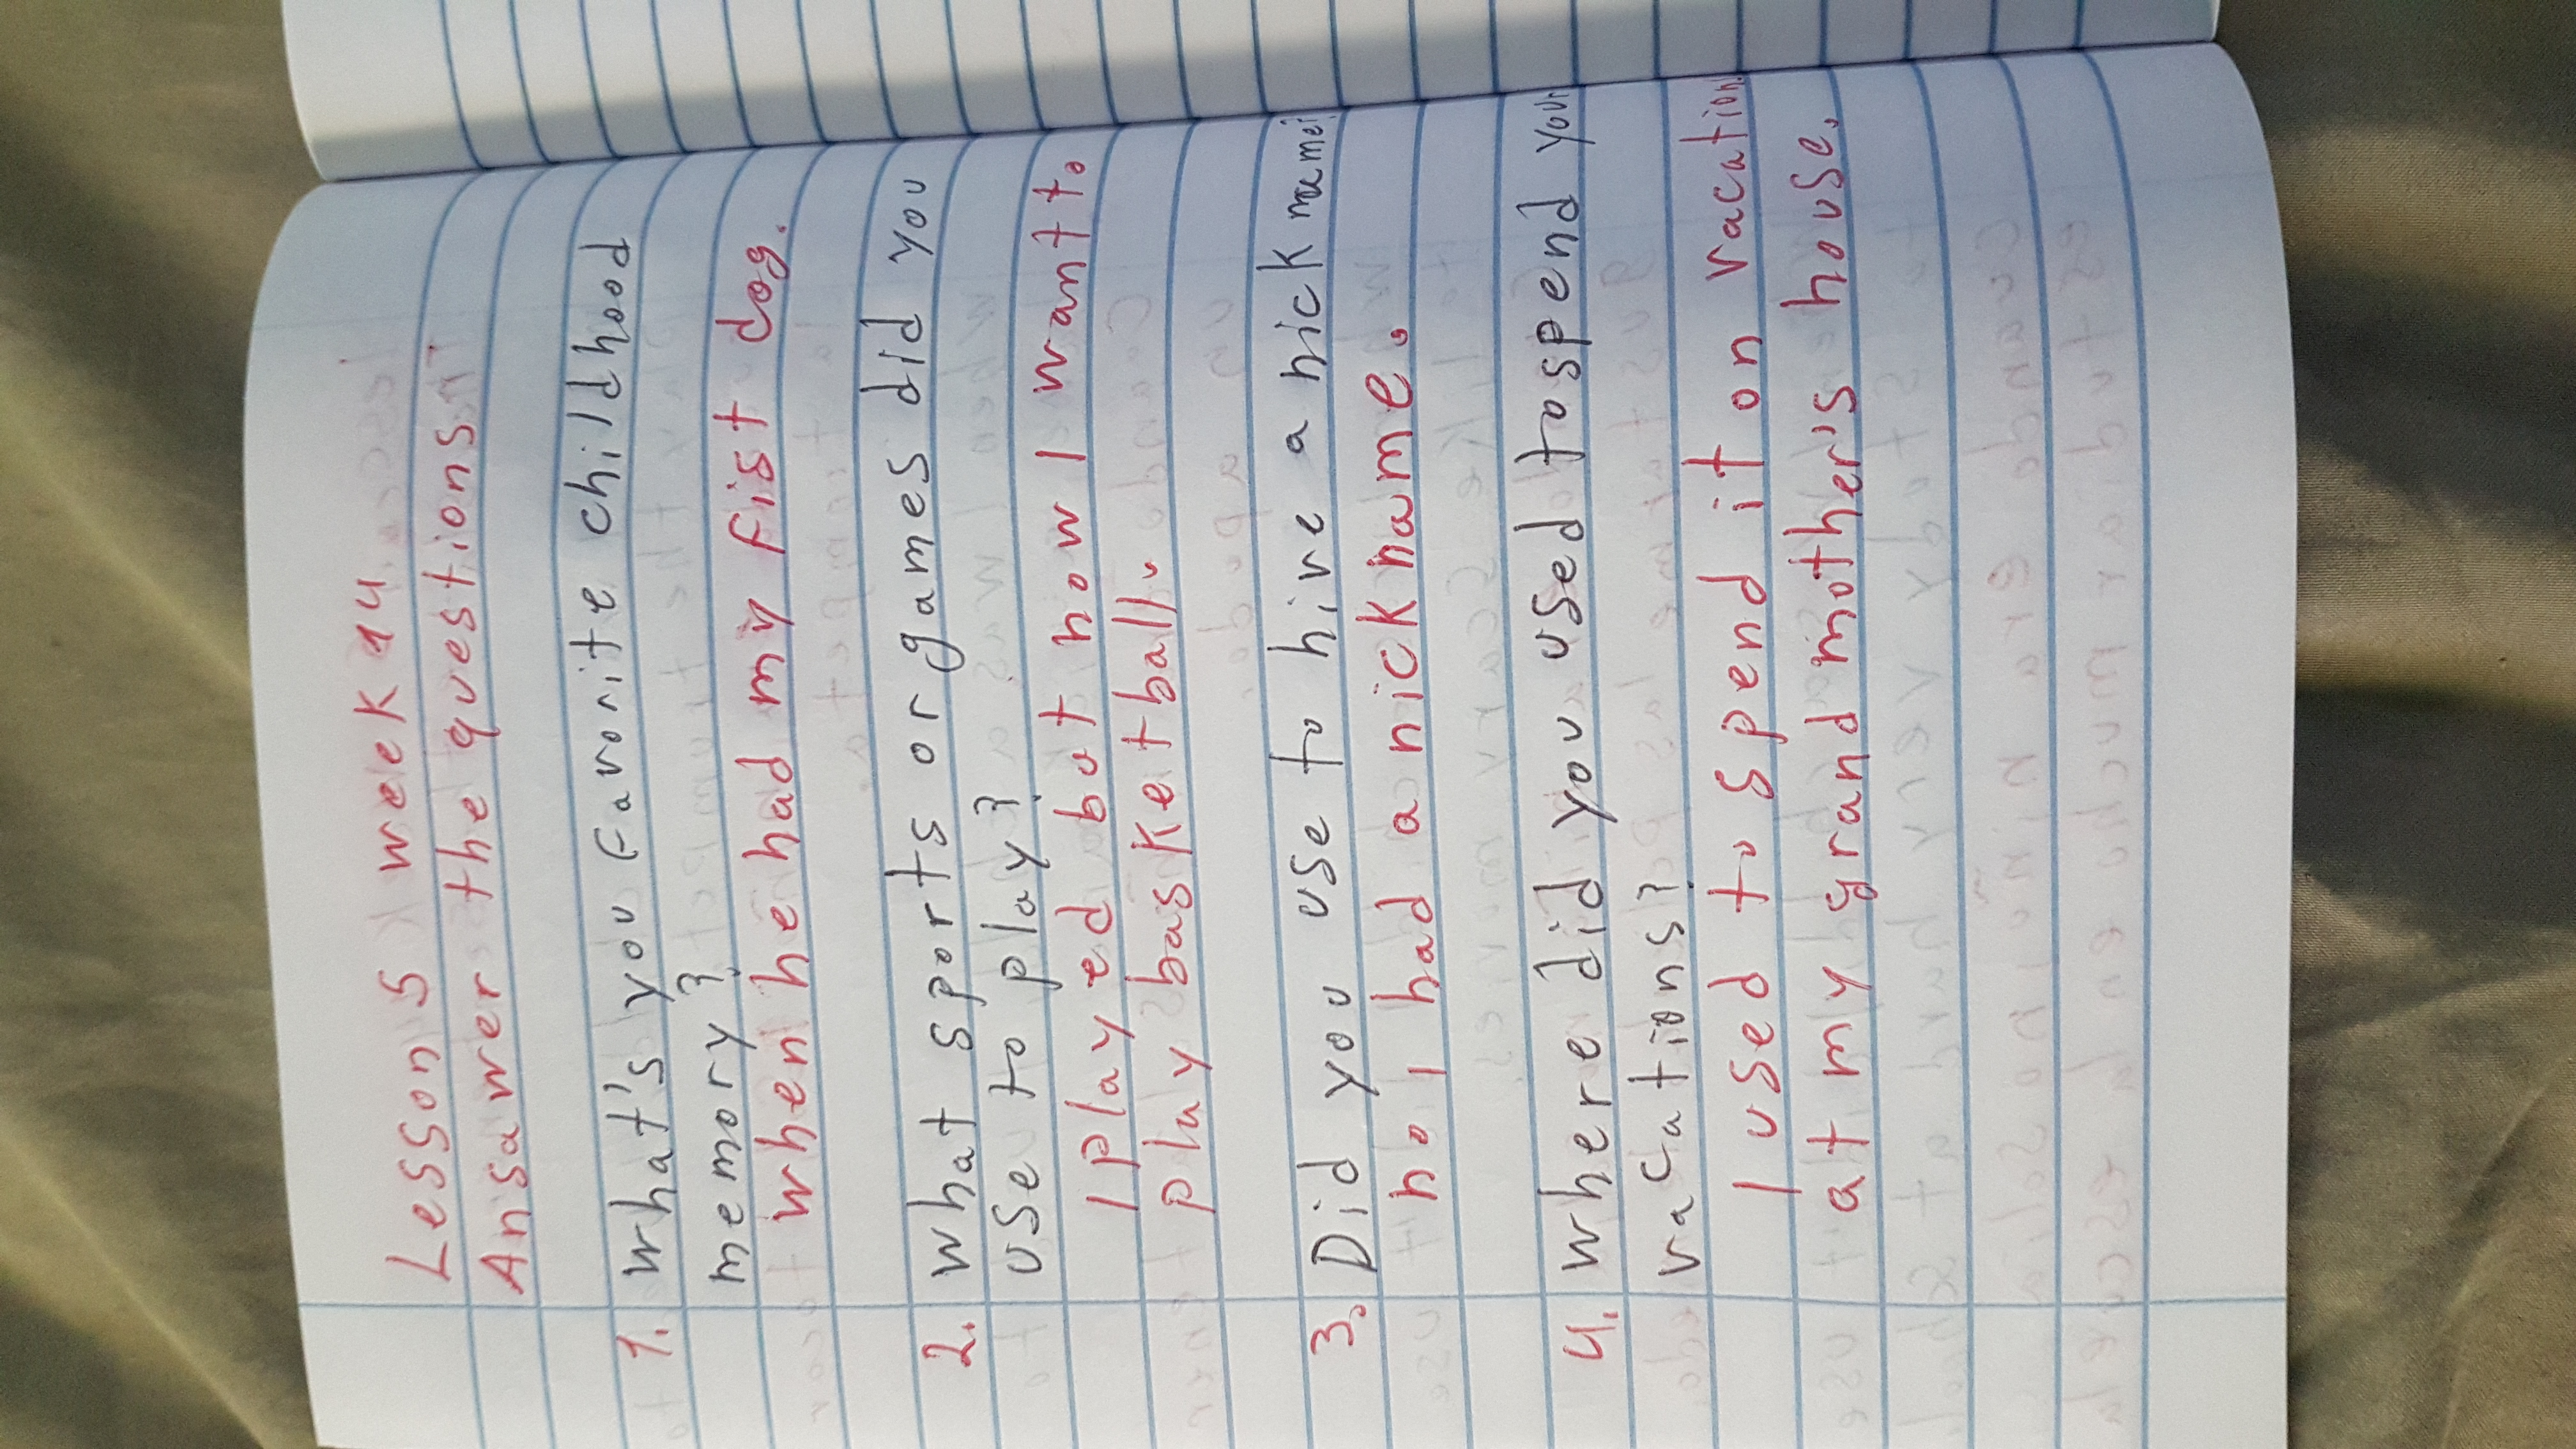 Lesson 5 week 14
Answer the questions
1. what's you favorite childhood
memory?
when he had my fist dog.
2. what sports or games did you
use to play?
I played bot now I want to
play basketball.
3. Did you use to hive a nickname?
no, I had a nickname.
4. where did you used to spend your
vacations?
I used to spend it on vacation
at my grandmother's house.